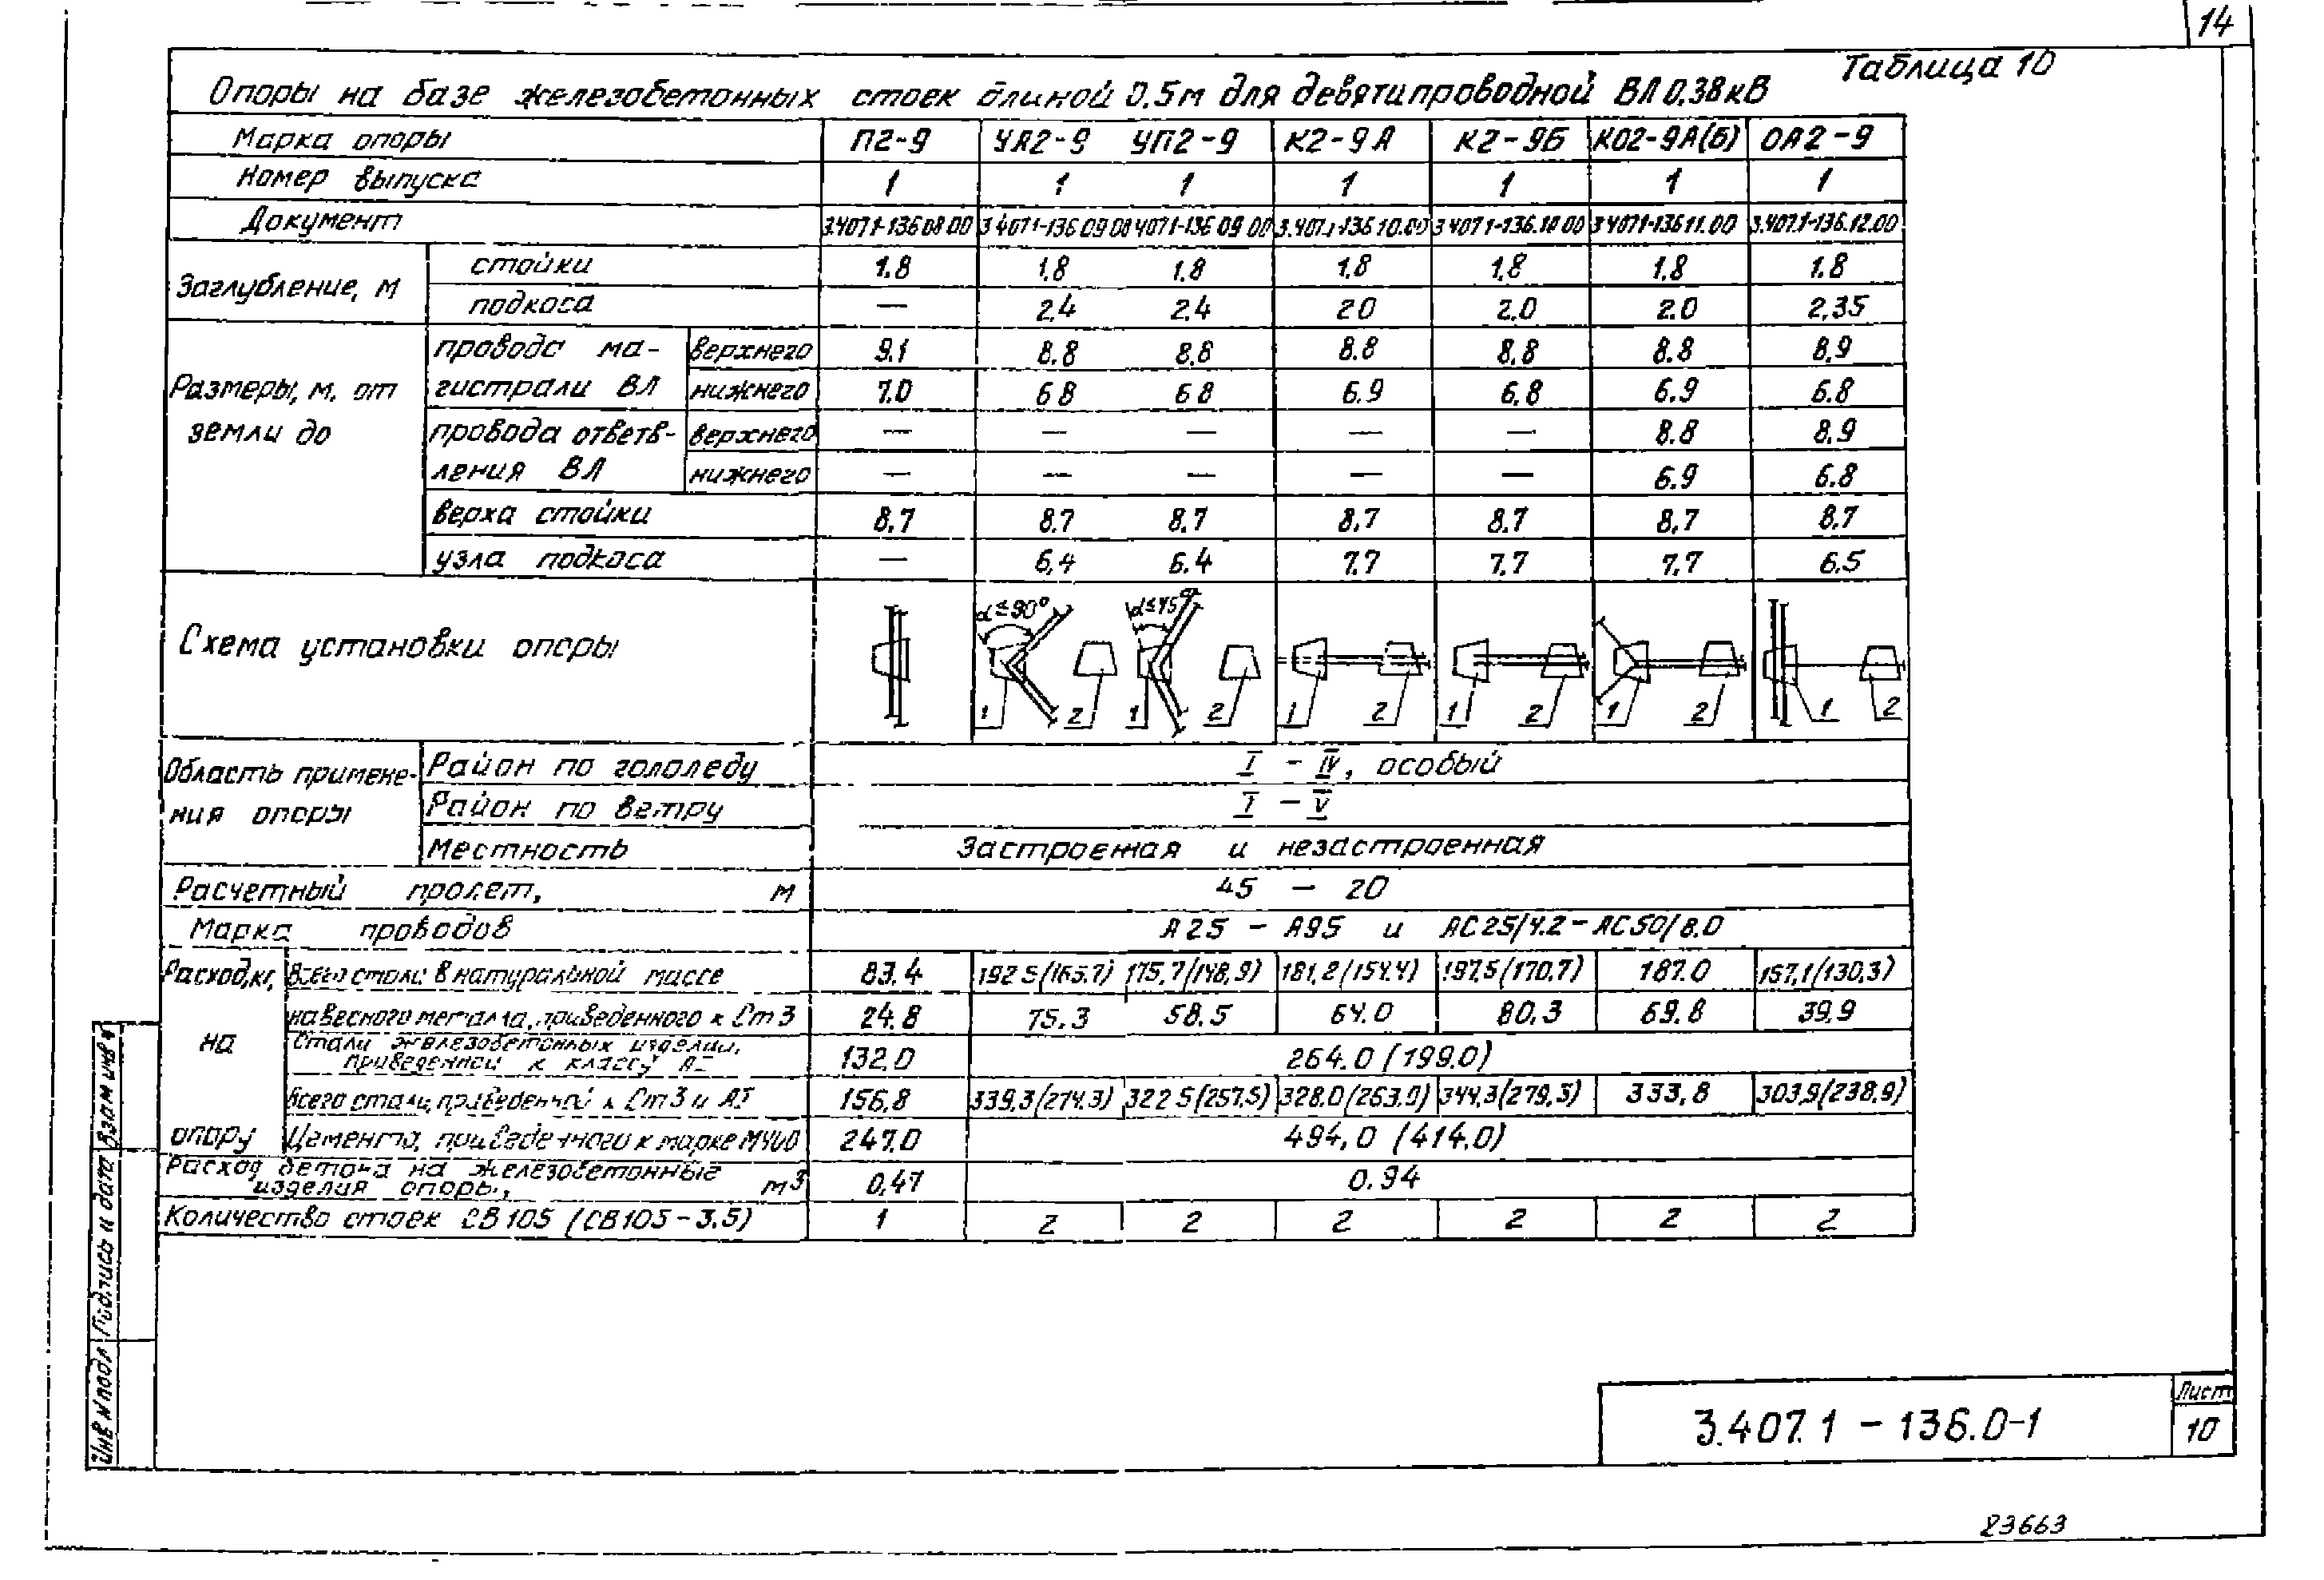 14
Таблица 10
Опоры на базе железобетонных стоек длиной 0.5м для девятипроводной ВЛ 0.38кВ
Марка опоры П2-9 УА2-9 УП2-9 К2-9А К2-9Б КО2-9А(Б) ОА2-9
Номер выпуска 1 1 1 1 1 1 1
Документ 3.4071-136 08 00 3 4071-136 09 00 4071-136 09 00 3.407.1-136 10.00 3 4071-136.10 00 3 4071-136 11.00 3.407.1-136.12.00
Заглубление, м стойки 1.8 1.8 1.8 1.8 1.8 1.8 1.8
подкоса — 2.4 2.4 2 0 2.0 2.0 2.35
Размеры, м, от земли до
провода магистрали ВЛ верхнего 9.1 8.8 8.8 8.8 8.8 8.8 8.9
нижнего 7.0 6 8 6 8 6.9 6.8 6.9 6.8
провода ответвления ВЛ верхнего — — — — — 8.8 8.9
нижнего — — — — — 6.9 6.8
верха стойки 8.7 8.7 8.7 8.7 8.7 8.7 8.7
узла подкоса — 6.4 6.4 7.7 7.7 7.7 6.5
Схема установки опоры
α≤90° α≤45°
1 2 1 2 1 2 1 2 1 2 1 2
Область применения опоры
Район по гололеду I - IV, особый
Район по ветру I - V
Местность Застроенная и незастроенная
Расчетный пролет, м 45 - 20
Марка проводов А25 - А95 и АС25/4.2 - АС50/8.0
Расход, кг, на опору
Всего стали в натуральной массе 83.4 192 5(165.7) 175,7(148,9) 181,2(154.4) 197.5(170,7) 187.0 157,1(130,3)
навесного металла, приведенного к Ст 3 24.8 75.3 58.5 64.0 80.3 69.8 39.9
Стали железобетонных изделий, приведенной к классу АI 132.0 264.0 (199.0)
Всего стали, приведенной к Ст3 и АI 156,8 339,3(274.3) 322 5(257.5) 328.0(263.0) 344,3(279,3) 333,8 303,9(238,9)
Цемента, приведенного к марке М400 247.0 494,0 (414.0)
Расход бетона на железобетонные изделия опоры, м³ 0,47 0.94
Количество стоек СВ105 (СВ105-3.5) 1 2 2 2 2 2 2
Инв № подл Подпись и дата Взам инв №
3.407.1 - 136.0-1
Лист
10
23663